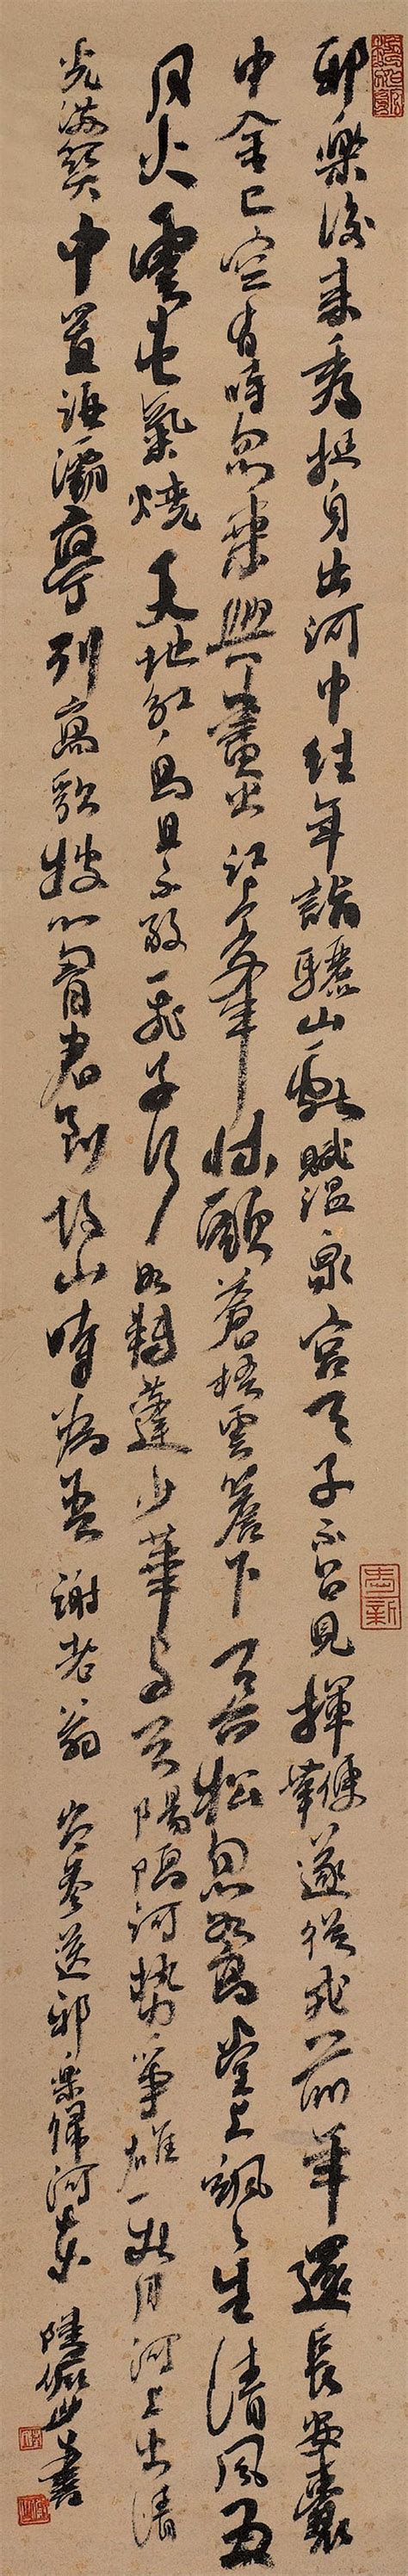 祁樂後來秀挺身出河中往年詣驪山獻賦溫泉宮天子不召見揮鞭遂從戎前年還長安囊
中金已空有時忽乘興畫出江上峯牀頭蒼梧雲簷下天台松忽如高堂上颯々生清風五
月火雲屯氣燒天地紅鳥且不敢飛子行如轉蓬少華與首陽隔河勢爭雄新月河上出清
光滿關中置酒灞亭別高歌披心胷君到故山時為吾謝老翁 岑參送祁樂歸河東 陸儼少書